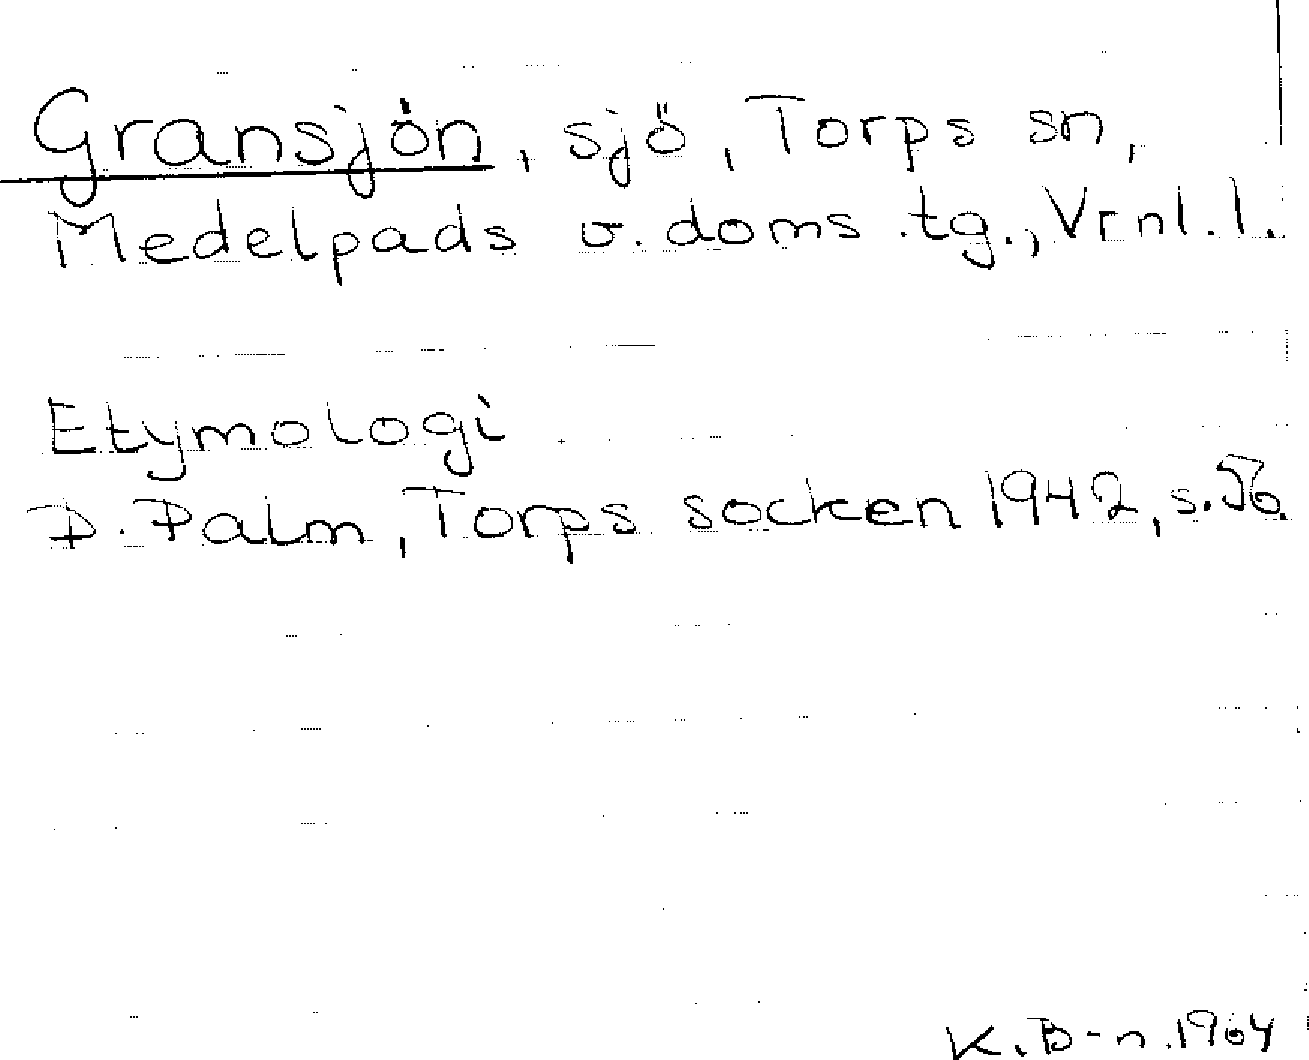 Gransjön, sjö, Torps sn,
Medelpads v. doms.tg., Vrnl. l.
Etymologi
D. Palm, Torps socken 1942, s. 76.
K. B-n. 1964